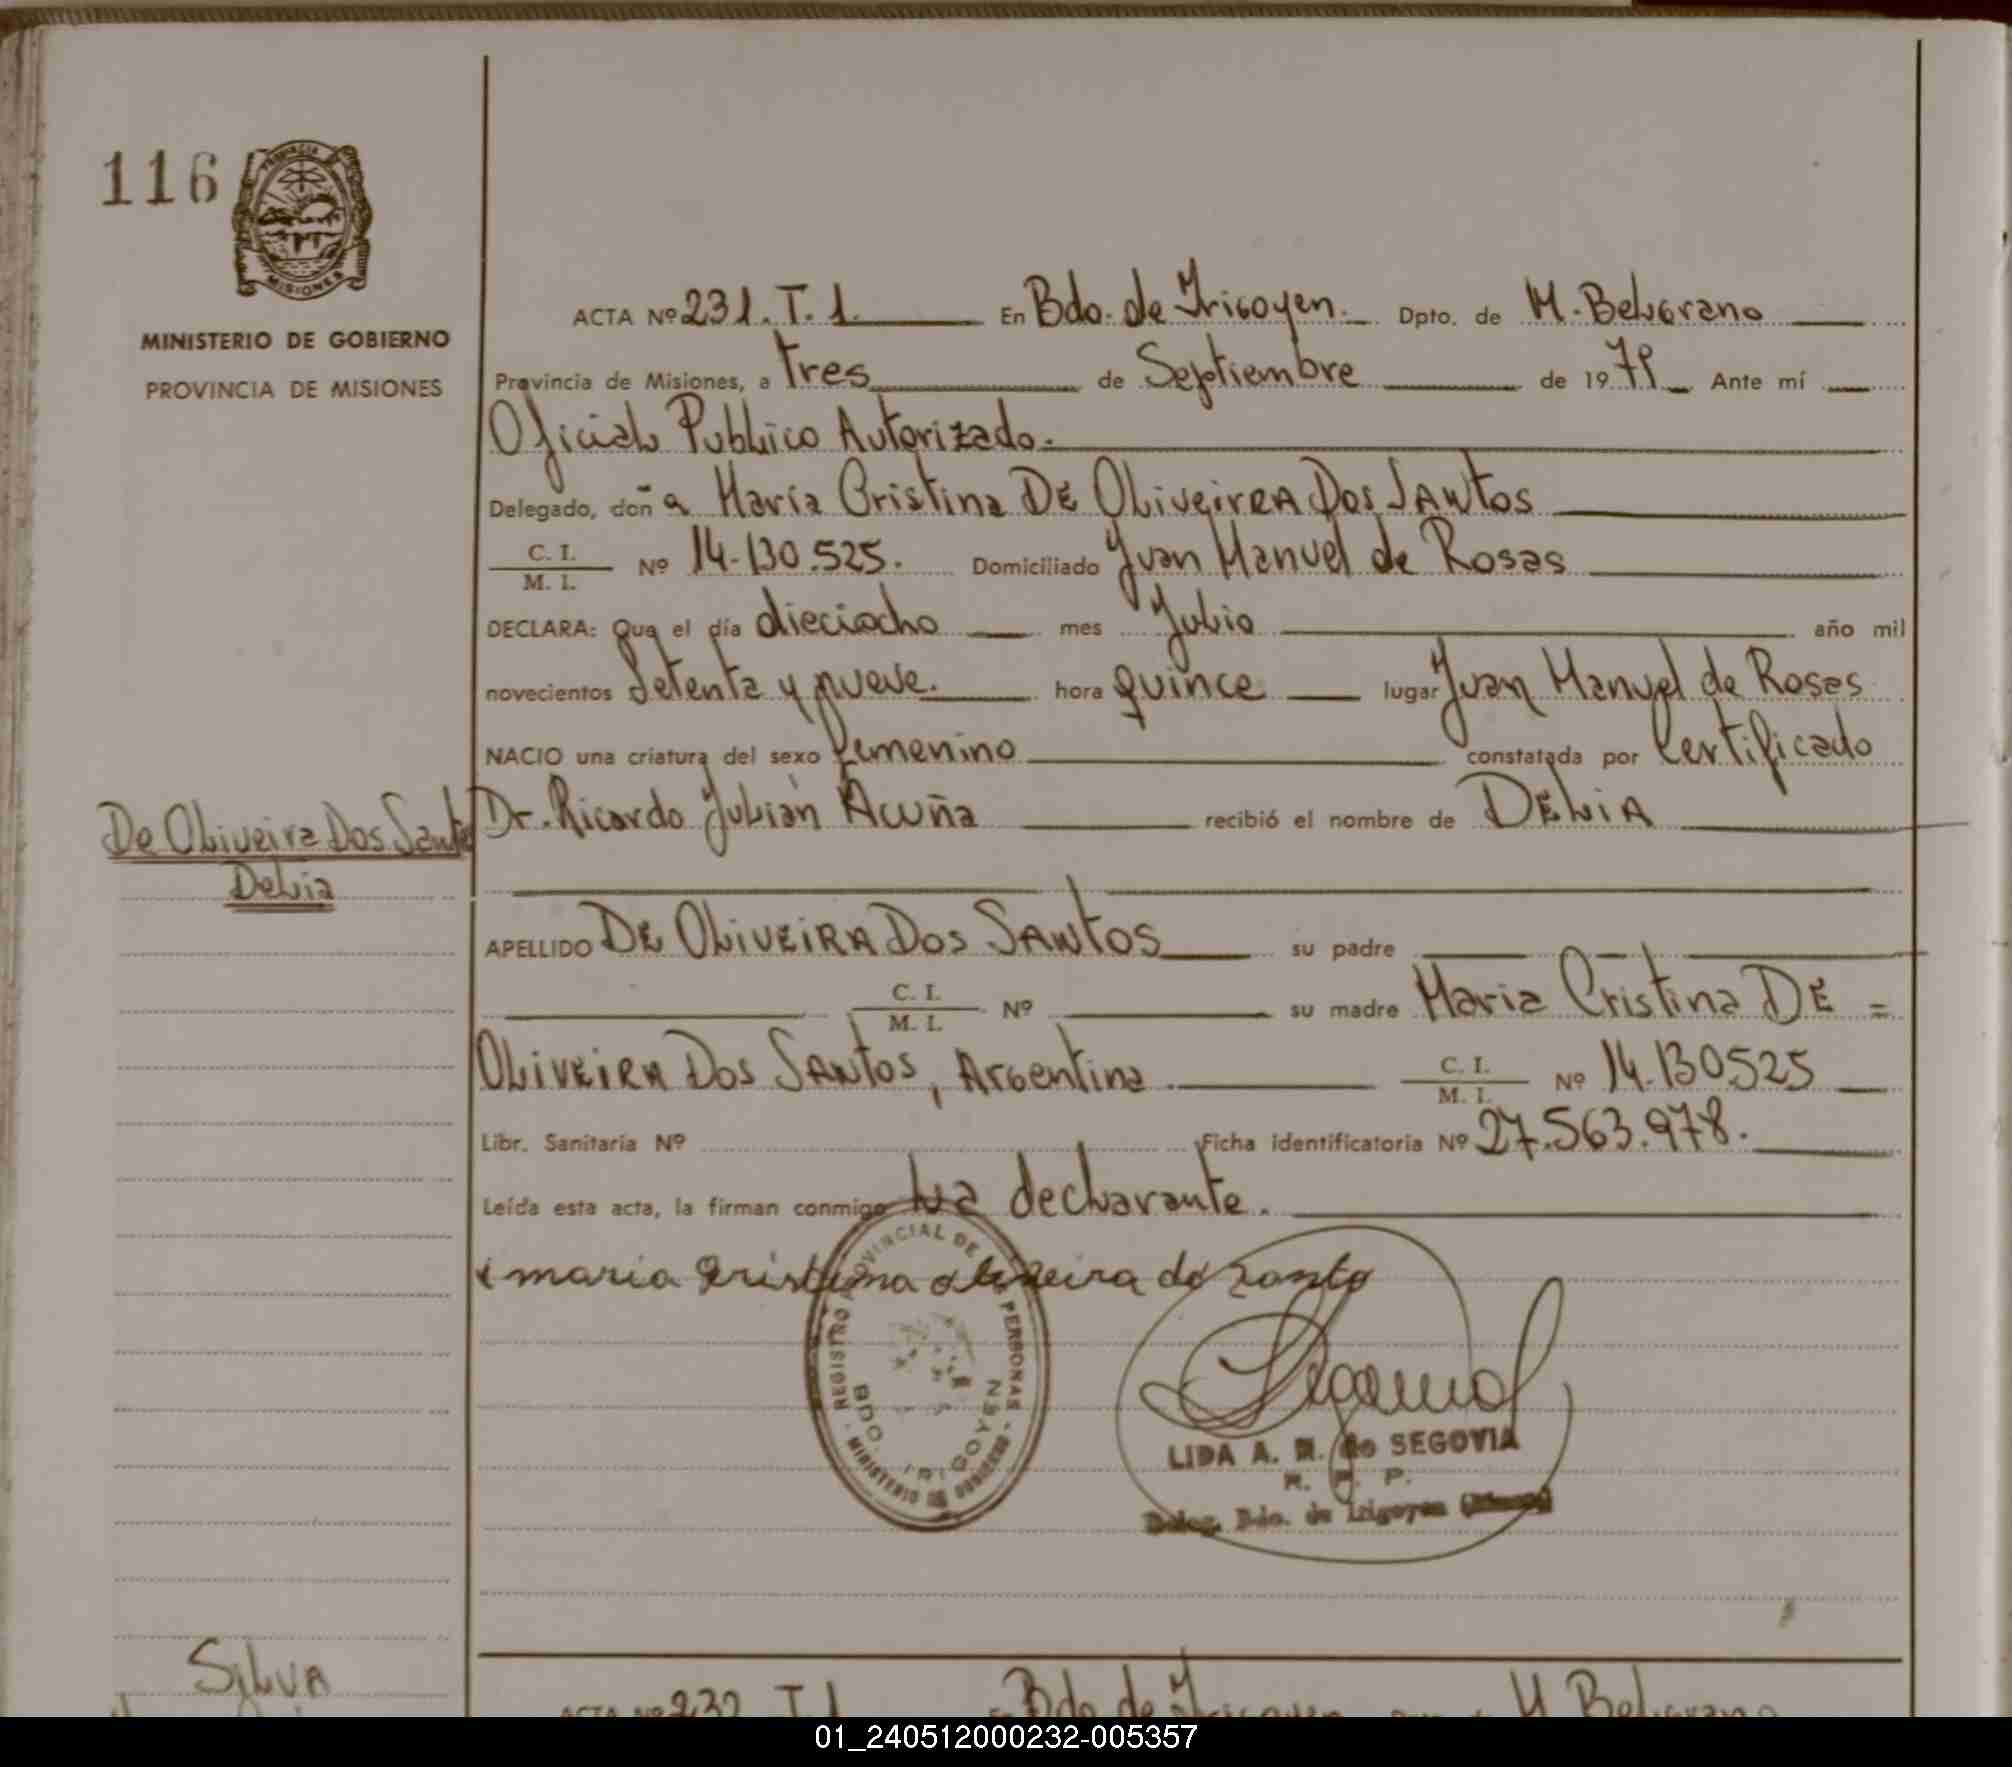 116
PROVINCIA
MISIONES
MINISTERIO DE GOBIERNO
PROVINCIA DE MISIONES
ACTA Nº 231. T. 1. En Bdo. de Irigoyen. Dpto. de M. Belgrano
Provincia de Misiones, a tres de Septiembre de 1979 Ante mí
Oficial Publico Autorizado.
Delegado, doña Maria Cristina DE OLIVEIREA DOS SANTOS
C. I. / M. I. Nº 14.130.525. Domiciliado Juan Manuel de Rosas
DECLARA: Que el día dieciocho mes Julio año mil
novecientos Setenta y nueve. hora quince lugar Juan Manuel de Rosas
NACIO una criatura del sexo femenino constatada por Certificado
Dr. Ricardo Julián Acuña recibió el nombre de DELIA
De Oliveira Dos Santos
Delia
APELLIDO DE OLIVEIRA DOS SANTOS su padre
C. I. / M. I. Nº su madre Maria Cristina DE =
OLIVEIRA DOS SANTOS, Argentina C. I. / M. I. Nº 14.130.525
Libr. Sanitaria Nº Ficha identificatoria Nº 27.563.978.
Leída esta acta, la firman conmigo La declarante.
maria cristina oliveira do santo
REGISTRO PROVINCIAL DE LAS PERSONAS
BDO. IRIGOYEN
MINISTERIO DE GOBIERNO
LIDA A. M. de SEGOVIA
R. P. P.
Deleg. Bdo. de Irigoyen
SILVA
ACTA Nº 232 T. 1 Bdo de Irigoyen M Belgrano
01_240512000232-005357